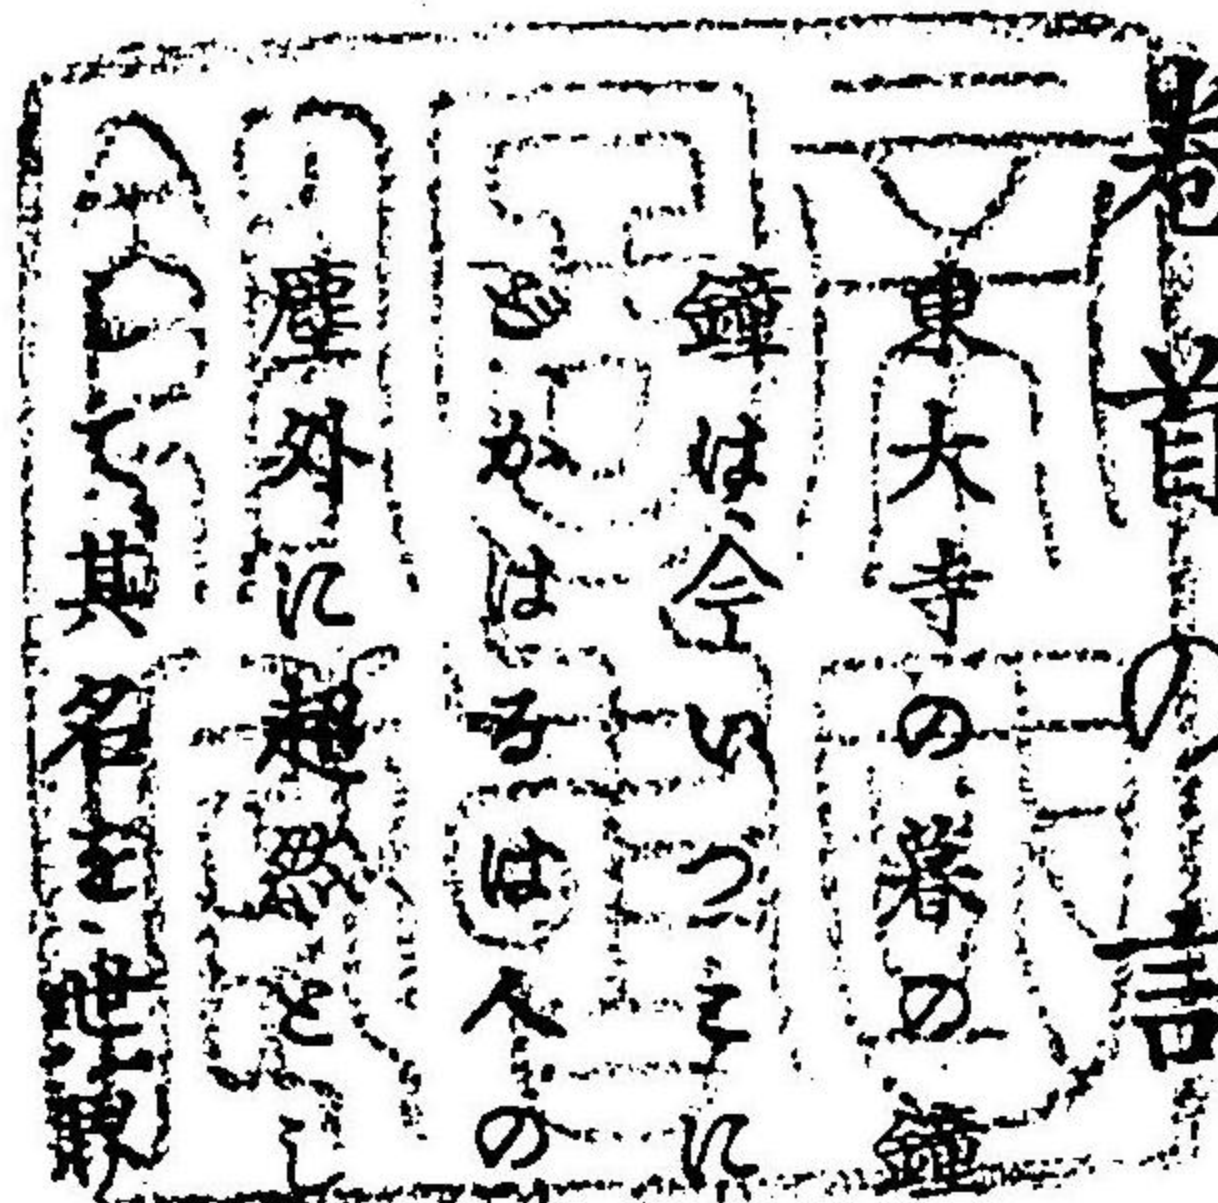 卷首の言
東大寺の暮の鐘
鐘は、今いづこに
かはるは人の
塵外に超然とし
て其名を世